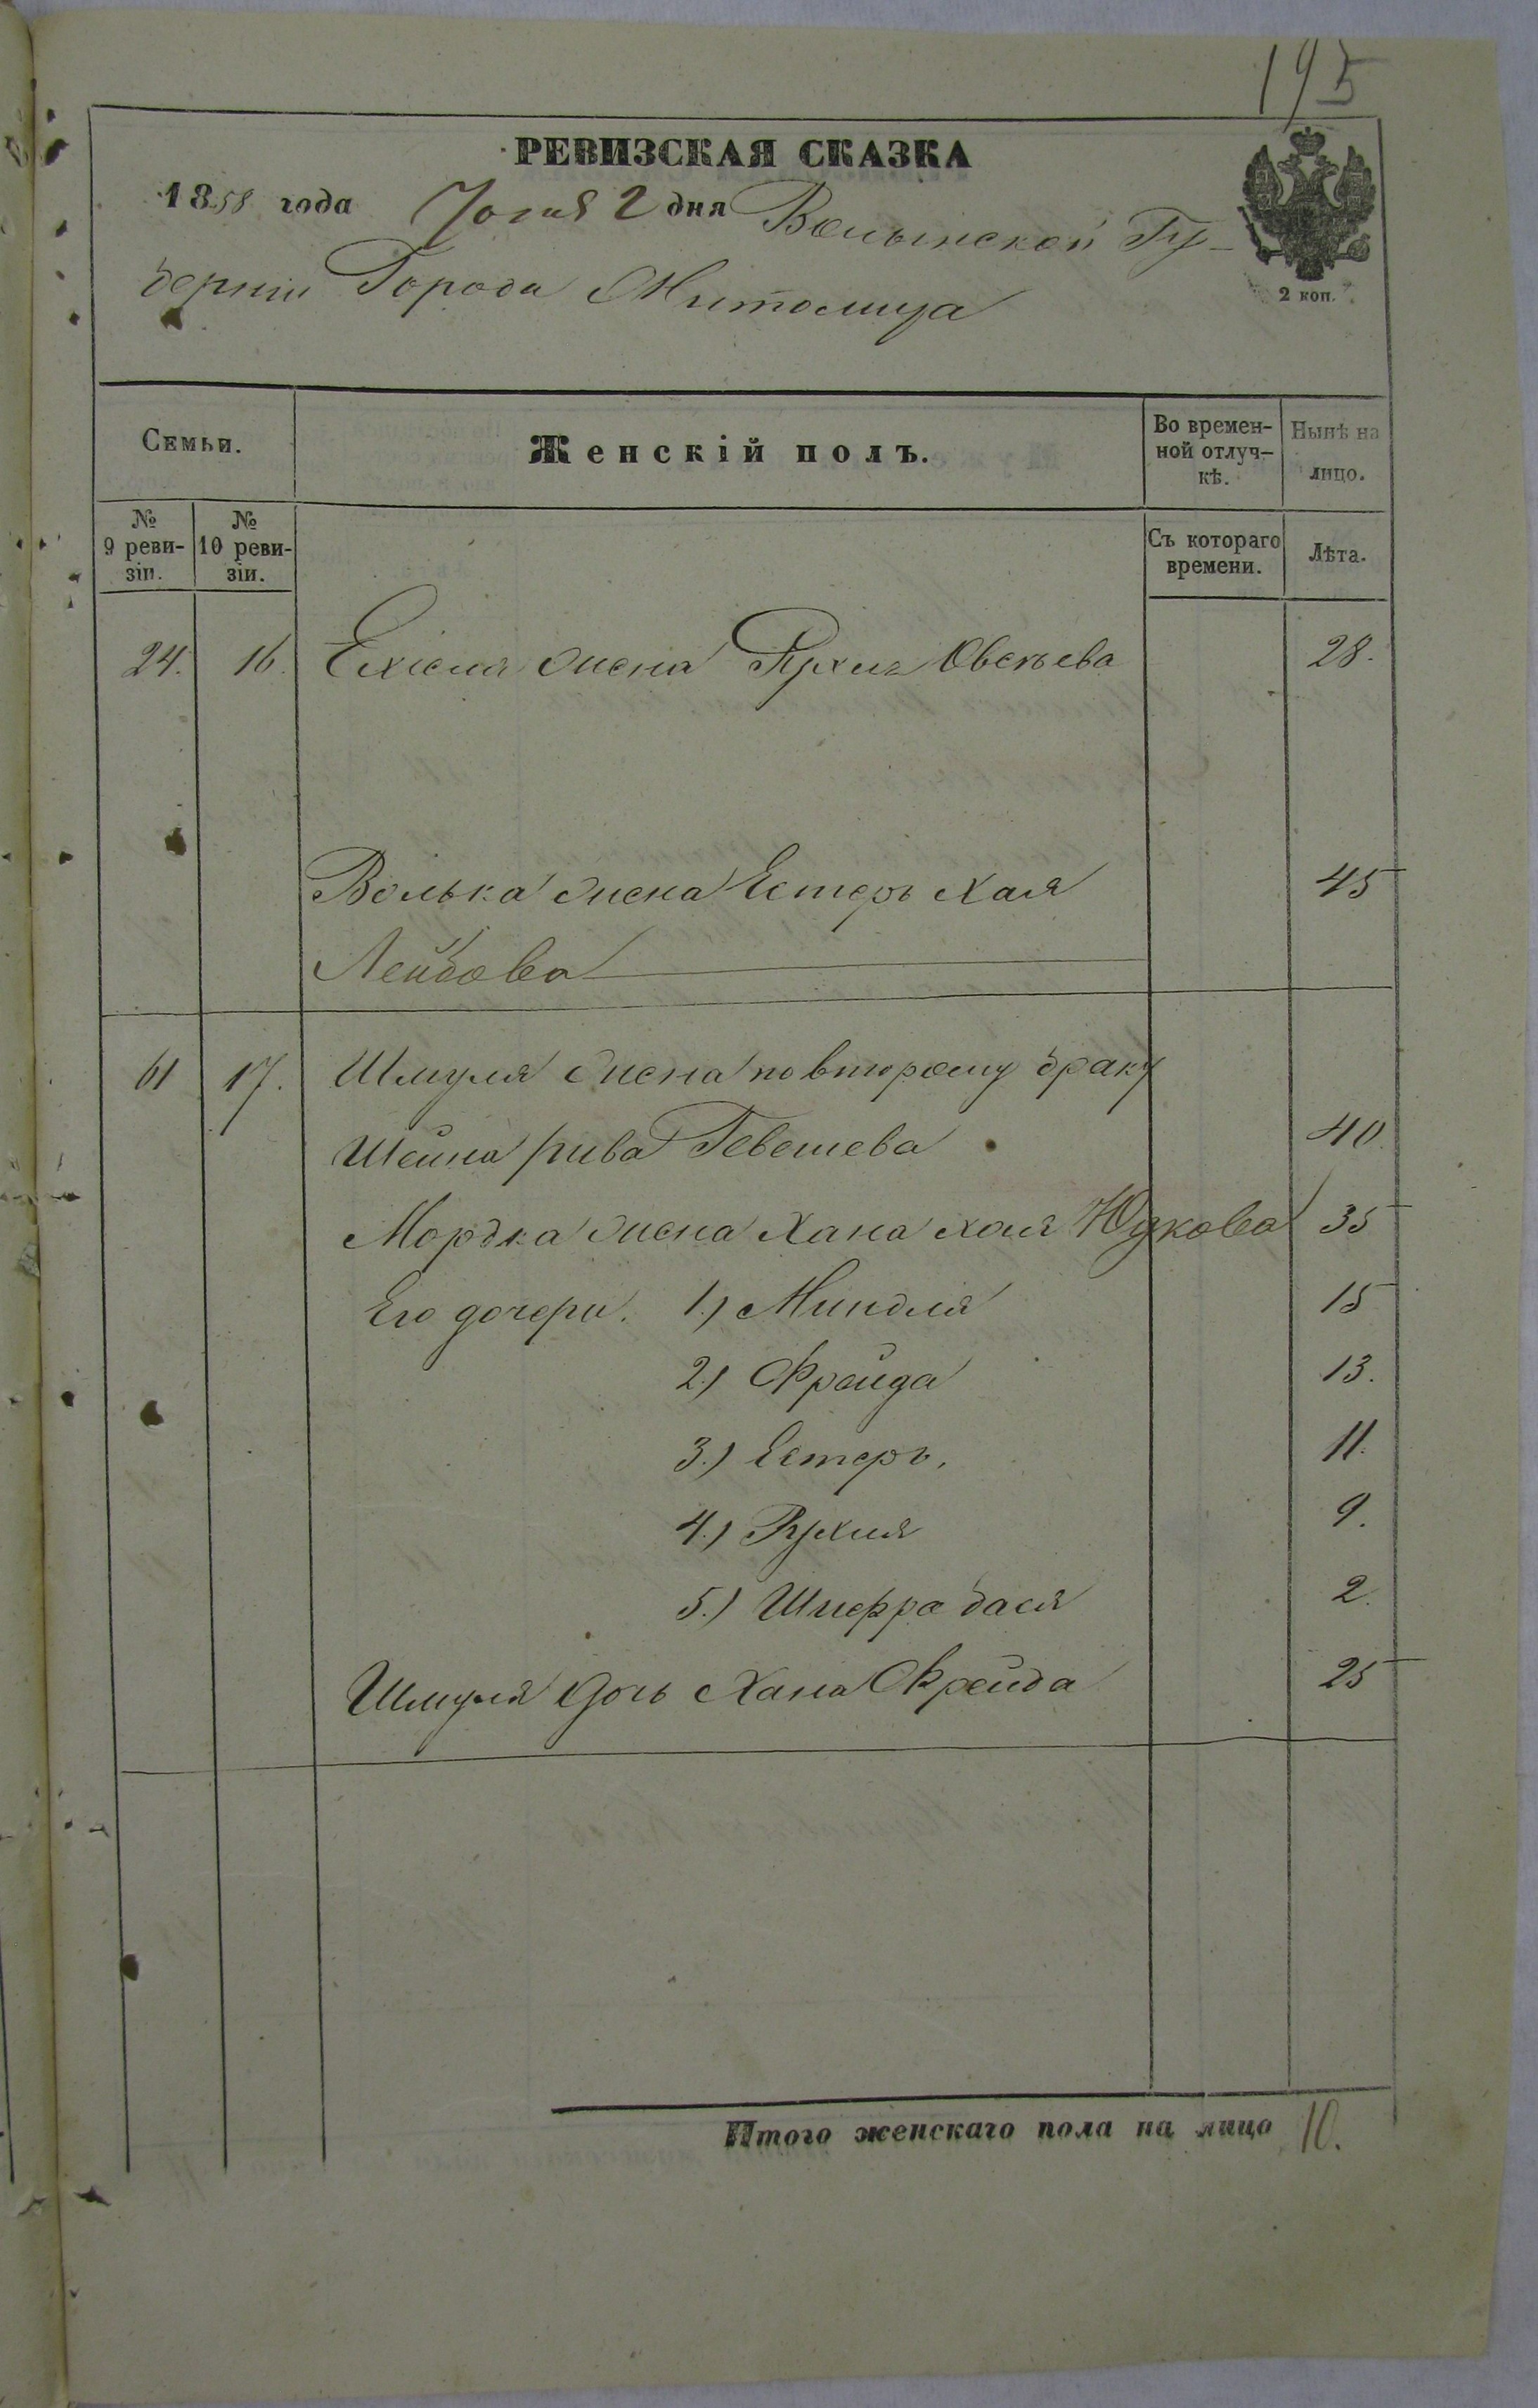 195
РЕВИЗСКАЯ СКАЗКА
1858 года Юня 2 дня Волынской Гу-
берніи Города Житомира
2 коп.
Семьи.
Женскій полъ.
Во времен-
ной отлуч-
кѣ.
Нынѣ на
лицо.
№
9 реви-
зіи.
№
10 реви-
зіи.
Съ котораго
времени.
Лѣта.
24. 16. Ехіеля жена Рухля 28.
Волька жена Естеръ Хая 45
Лейбова
61 17. Шмуля жена по второму браку
Шейна рива Гевешева 40
Мордка жена Хана хая Юдкова 35
Его дочери. 1.) Миндля 15
2.) Фрейда 13.
3.) Естеръ. 11.
4.) Рухля 9.
5.) Шпефра бася 2.
Шмуля дочь Хана Фрейда 25
Итого женскаго пола на лицо 10.